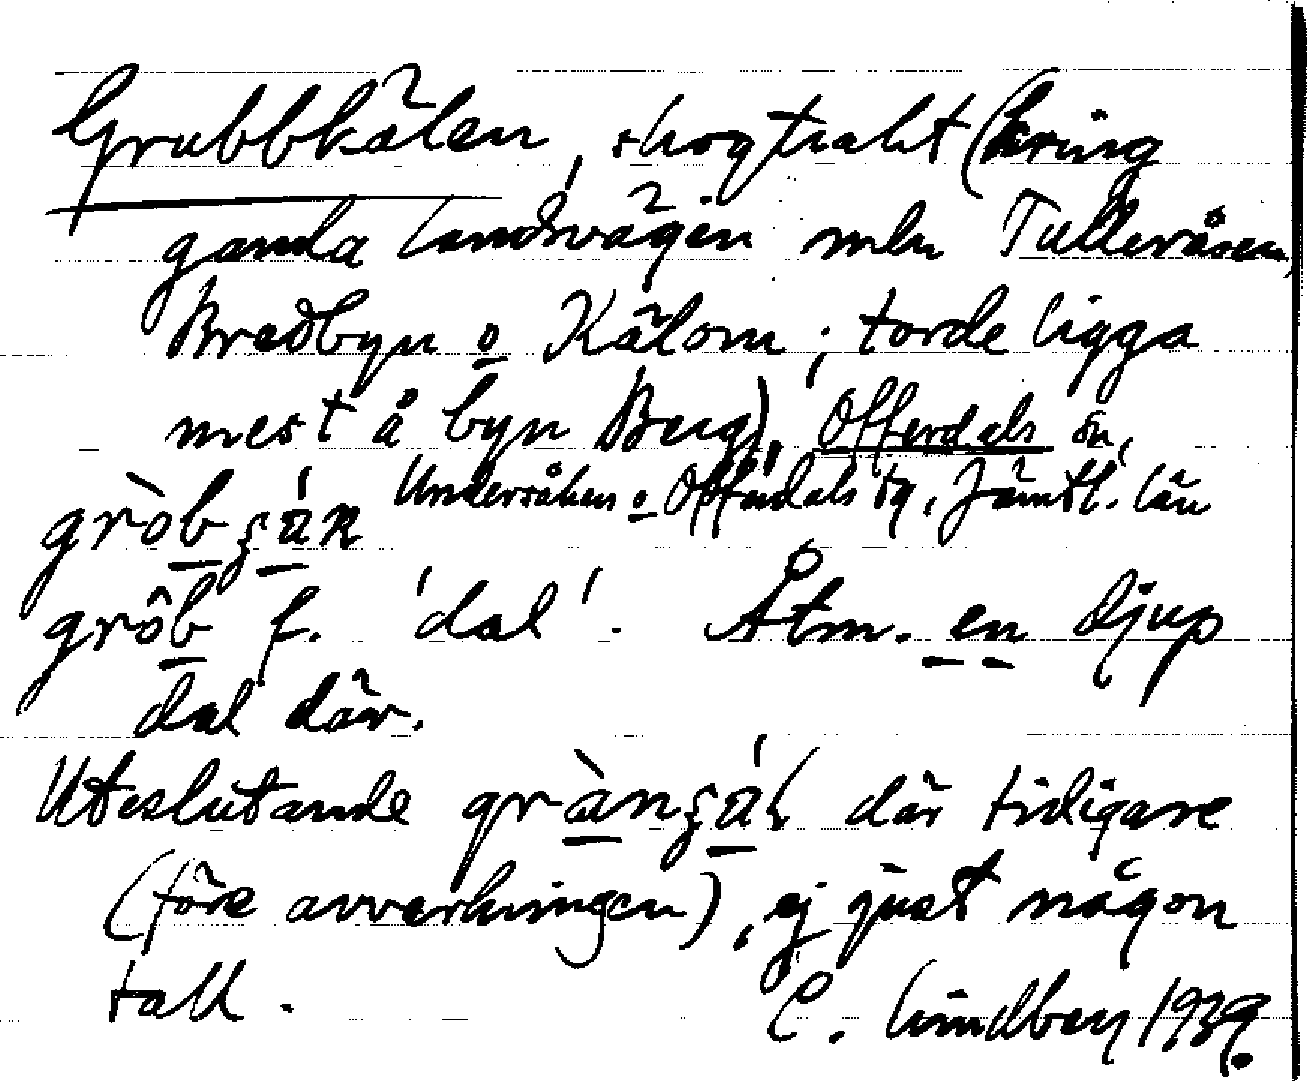 Grubbkälen, skogtrakt (kring
gamla landsvägen mln Tulleråsen,
Bredbyn o Kälom; torde ligga
mest å byn Berg), Offerdals sn,
Undersåkers o Offerdals tg, Jämtl. län
grò̱bʂá̱n
grô̱b f. 'dal'. Åtm. en djup
dal där.
Uteslutande grà̱nʂá̱l där tidigare
(före avverkningen), ej just någon
tall.
C. Lindberg 1939.